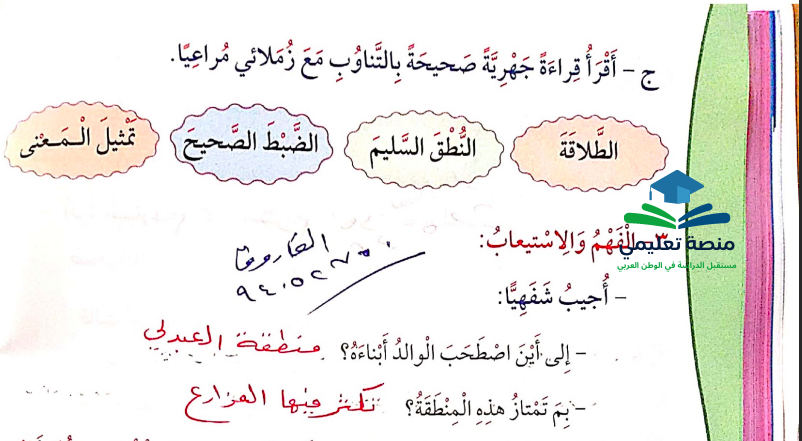 ج – أَقْرَأُ قِراءَةً جَهْرِيَّةً صَحيحَةً بِالتَّناوُبِ مَعَ زُمَلائي مُراعِيًا.
الطَّلاقَةَ النُّطْقَ السَّليمَ الضَّبْطَ الصَّحيحَ تَمْثيلَ الْمَـعْنى
منصة تعليمي
مستقبل الدراسة في الوطن العربي
الْفَهْمُ وَالِاسْتيعابُ:
– أُجيبُ شَفَهِيًّا:
– إِلى أَيْنَ اصْطَحَبَ الْوالدُ أَبْناءَهُ؟ منطقة العبدلي
– بِمَ تَمْتازُ هذِهِ الْمِنْطَقَةُ؟ تكثر فيها المزارع